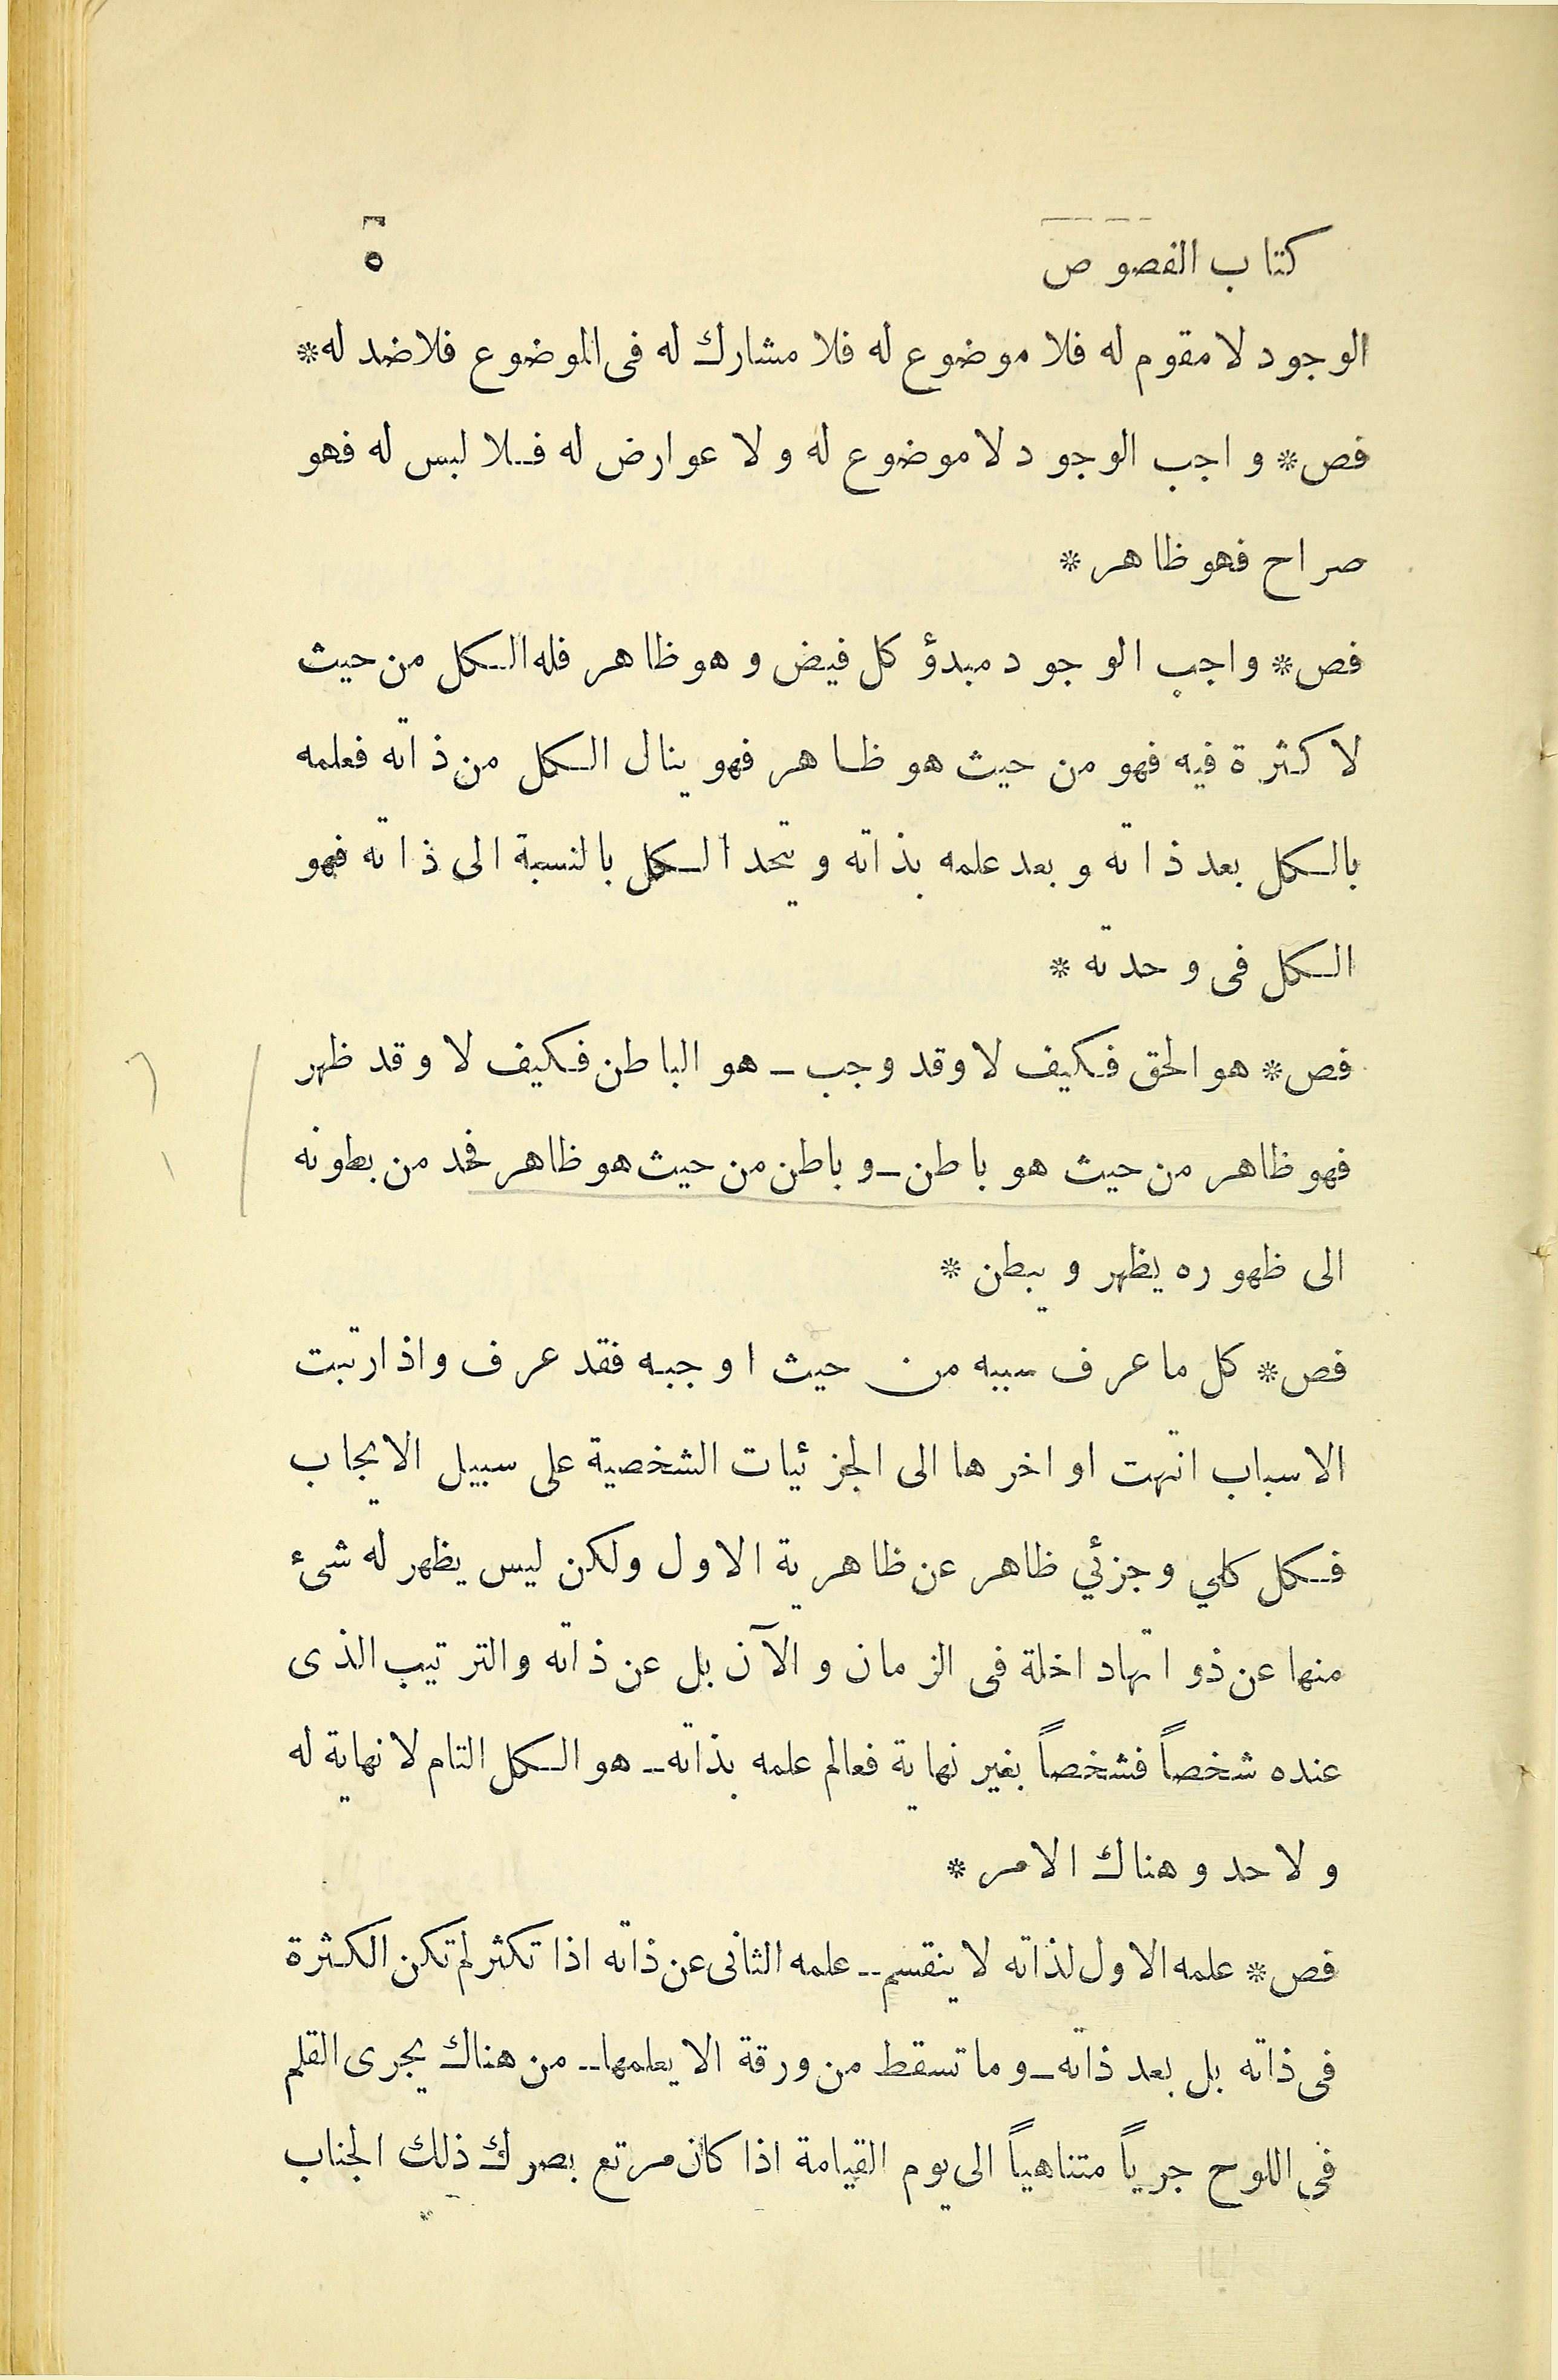 كتاب الفصوص ٥
الوجود لا مقوم له فلا موضوع له فلا مشارك له فى الموضوع فلا ضد له*
فص* واجب الوجود لا موضوع له ولا عوارض له فلا لبس له فهو
صراح فهو ظاهر*
فص* واجب الوجود مبدؤ كل فيض وهو ظاهر فله الكل من حيث
لا كثرة فيه فهو من حيث هو ظاهر فهو ينال الكل من ذاته فعلمه
بالكل بعد ذاته وبعد علمه بذاته ويتحد الكل بالنسبة الى ذاته فهو
الكل فى وحدته*
فص* هو الحق فكيف لا وقد وجب ـ هو الباطن فكيف لا وقد ظهر
فهو ظاهر من حيث هو باطن ـ وباطن من حيث هو ظاهر فخذ من بطونه
الى ظهوره يظهر ويبطن*
فص* كل ما عرف سببه من حيث اوجبه فقد عرف واذا رتبت
الاسباب انتهت اواخرها الى الجزئيات الشخصية على سبيل الايجاب
فكل كلي وجزئي ظاهر عن ظاهرية الاول ولكن ليس يظهر له شئ
منها عن ذواتها داخلة فى الزمان والآن بل عن ذاته والترتيب الذى
عنده شخصاً فشخصاً بغير نهاية فعالم علمه بذاته ـ هو الكل التام لا نهاية له
ولا حد وهناك الامر*
فص* علمه الاول لذاته لا ينقسم ـ علمه الثانى عن ذاته اذا تكثر لم تكن الكثرة
فى ذاته بل بعد ذاته ـ وما تسقط من ورقة الا يعلمها ـ من هناك يجرى القلم
فى اللوح جرياً متناهياً الى يوم القيامة اذا كان مرتع بصرك ذلك الجناب